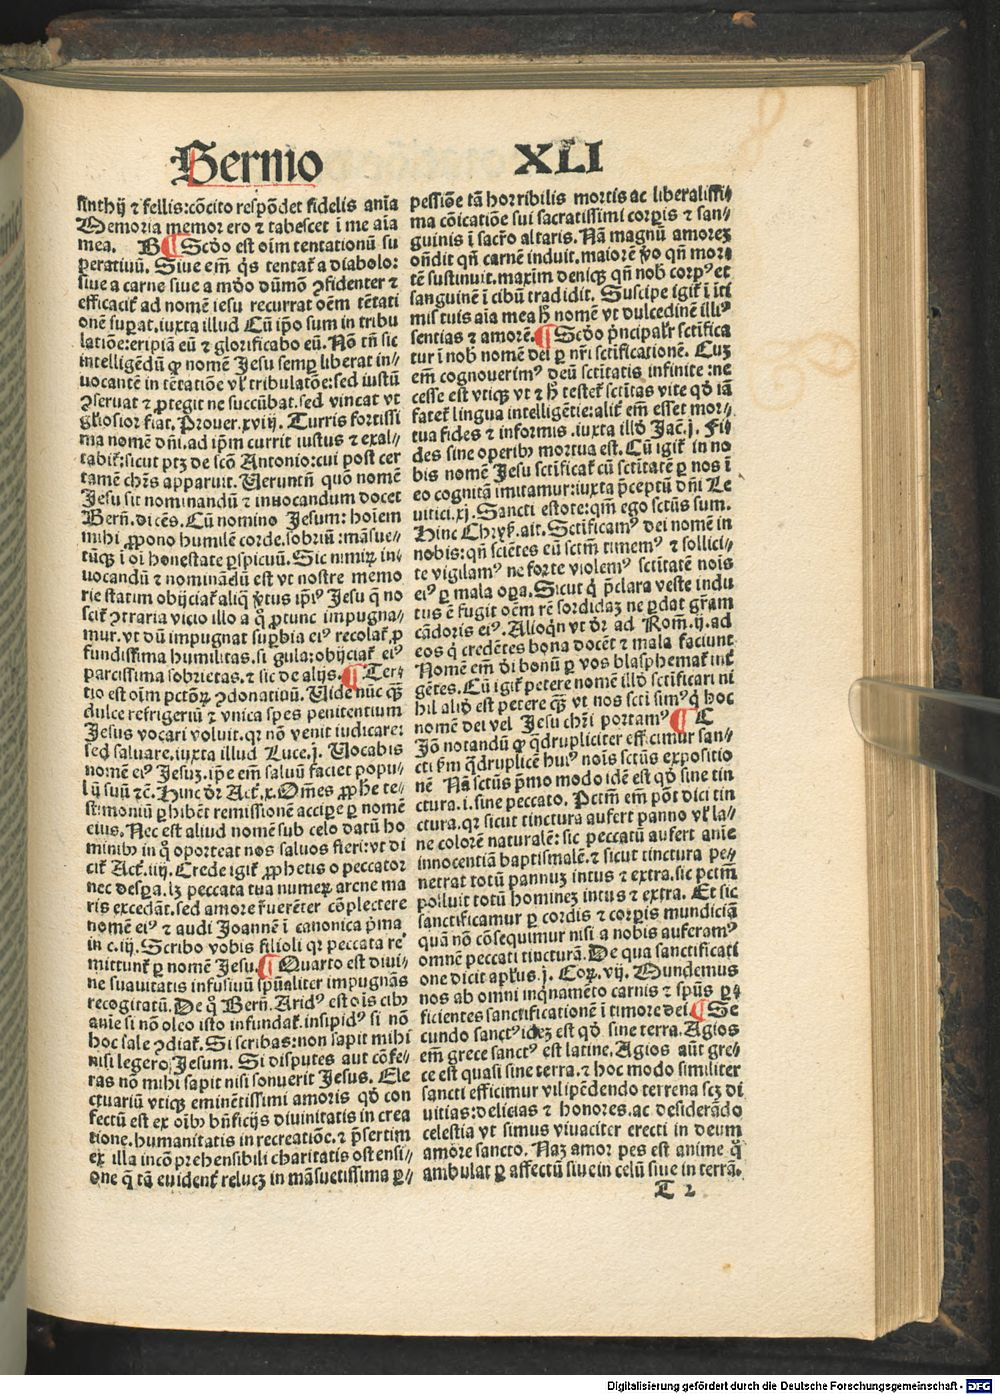 Sermo XLI
sinthij ⁊ fellis:cõcito respõdet fidelis anĩa
Memoria memor ero ⁊ tabescet ĩ me aĩa
mea. B ¶ Scđo est oĩm tentationũ su
peratiuũ. Siue em̃ q̃s tentat᷑ a diabolo:
siue a carne siue a mũdo dũmõ ꝯfidenter ⁊
efficacit᷑ ad nomẽ iesu recurrat oẽm tẽtati
onẽ suꝑat.iuxta illud Cũ ip̃o sum in tribu
latiõe:eripiã eũ ⁊ glorificabo eũ. Nõ tñ sic
intelligẽdũ ꝙ nomẽ Jesu semꝑ liberat in⸗
uocantẽ in tẽtatiõe vl᷑ tribulatõe:sed iustũ
ꝯseruat ⁊ ꝓtegit ne succũbat.sed vincat vt
gl̃iosior fiat. Prouer.xviij. Turris fortissi
ma nomẽ dñi.ad ip̃m currit iustus ⁊ exal⸗
tabit᷑:sicut ptꝫ de scõ Antonio:cui post cer
tamẽ chr̃s apparuit. Ueruntñ quo nomẽ
Jesu sit nominandũ ⁊ inuocandum docet
Bern̄.dicẽs. Cũ nomino Jesum: hoĩem
mihi ꝓpono humilẽ corde.sobriũ: mãsue⸗
tũqꝫ ĩ oĩ honestate ꝑspicuũ. Sic nimiꝝ in⸗
uocandũ ⁊ nominãdũ est vt nostre memo
rie statim obijciat᷑ aliq̃ ꝟtus ip̃iꝰ Jesu q̃ no
scit᷑ ꝯtraria vicio illo a q̊ ꝓtunc impugna⸗
mur.vt dũ impugnat suꝑbia eiꝰ recolat᷑ ꝓ
fundissima humilitas.si gula:obijciat᷑ eiꝰ
parcissima sobrietas.⁊ sic de alijs. ¶ Ter⸗
tio est oĩm pctõꝝ ꝯdonatiuũ. Uide nũc q̃ꝫ
dulce refrigeriũ ⁊ vnica spes penitentium
Jesus vocari voluit.qꝛ nõ venit iudicare:
sed saluare.iuxta illud Luce.j. Uocabis
nomẽ eiꝰ Jesuꝫ.ip̃e em̃ saluũ faciet popu⸗
lũ suũ ⁊c̃. Hinc dr̃ Act᷑.x. Om̃es ꝓphe te⸗
stimoniũ ꝑhibẽt remissionẽ accipe ꝑ nomẽ
eius. Nec est aliud nomẽ sub celo datũ ho
minibꝰ in q̊ oporteat nos saluos fieri:vt di
cit᷑ Act᷑.iiij. Crede igit᷑ ꝓphetis o peccator
nec desꝑa.lꝫ peccata tua numeꝝ arene ma
ris excedãt.sed amore r̃uerẽter cõplectere
nomẽ eiꝰ ⁊ audi Joannẽ ĩ canonica p̃ma
in c.iij. Scribo vobis filioli qꝛ peccata re
mittunt᷑ ꝑ nomẽ Jesu. ¶ Quarto est diui⸗
ne suauitatis infusiuũ spũaliter impugnãs
recogitatũ. De q̊ Bern̄. Aridꝰ est oĩs cibꝰ
anie si nõ oleo isto infundat᷑.insipidꝰ si nõ
hoc sale ꝯdiat᷑. Si scribas:non sapit mihi
nisi legero Jesum. Si disputes aut cõfe⸗
ras nõ mihi sapit nisi sonuerit Jesus. Ele
ctuariũ vtiqꝫ eminẽtissimi amoris qđ con
fectũ est ex oĩbꝰ bñficijs diuinitatis in crea
tione.humanitatis in recreatiõe.⁊ p̃sertim
ex illa incõprehensibili charitatis ostensi⸗
one q̃ tã euident᷑ relucꝫ in mãsuetissima ꝑ⸗
pessiõe tã horribilis mortis ac liberalissi⸗
ma cõicatiõe sui sacratissimi corꝑis ⁊ san⸗
guinis ĩ sacr̃o altaris. Nã magnũ amoreꝫ
oñdit qñ carnẽ induit.maiorẽ ꝟo qñ mor
tẽ sustinuit.maxim̃ deniqꝫ qñ nob̃ corpꝰ et
sanguinẽ ĩ cibũ tradidit. Suscipe igit᷑ ĩ ĩti
mis tuis aĩa mea h̃ nomẽ vt dulcedinẽ illiꝰ
sentias ⁊ amorẽ. ¶ Scđo p̃ncipalr̃ sctĩfica
tur ĩ nob̃ nomẽ dei ꝑ nr̃i sctĩficationẽ. Cuꝫ
em̃ cognouerimꝰ deũ sctĩtatis infinite:ne
cesse est vtiqꝫ vt ⁊ h̃ testet᷑ sctĩtas vite qđ iã
fatet᷑ lingua intelligẽtie:alit᷑ em̃ esset mor⸗
tua fides ⁊ informis.iuxta illđ Jac̃.j. Fi⸗
des sine operibꝰ mortua est. Cũ igit᷑ in no
bis nomẽ Jesu sctĩficat᷑ cũ sctĩtatẽ ꝑ nos ĩ
eo cognitã imitamur:iuxta p̃ceptũ dñi Le
uitici.xj. Sancti estote:qm̃ ego sctũs sum.
Hinc Chrys̃.ait. Sctĩficamꝰ dei nomẽ in
nobis:qñ sciẽtes eũ sctm̃ timemꝰ ⁊ sollici⸗
te vigilamꝰ ne forte violemꝰ sctĩtatẽ noĩs
eiꝰ ꝑ mala oꝑa. Sicut q̃ p̃clara veste indu
tus ẽ fugit oẽm rẽ sordidaꝫ ne ꝑdat gr̃am
cãdoris eiꝰ. Alioqñ vt dr̃ ad Rom̃.ij.ad
eos q̃ credẽtes bona docẽt ⁊ mala faciunt
Nomẽ em̃ dĩ bonũ ꝑ vos blasphemat᷑ int᷑
gẽtes. Cũ igit᷑ petere nomẽ illđ sctĩficari ni
hil aliđ est petere q̃ꝫ vt nos scti simꝰ q̃ hoc
nomẽ dei vel Jesu chr̃i portamꝰ ¶ C
Jõ notandũ ꝙ q̃drupliciter efficimur san⸗
cti ẜm q̃druplicẽ huiꝰ noĩs sctũs expositio
nẽ Nã sctũs p̃mo modo idẽ est qđ sine tin
ctura.i.sine peccato. Pctm̃ em̃ põt dici tin
ctura.qꝛ sicut tinctura aufert panno vl᷑ la⸗
ne colorẽ naturalẽ:sic peccatũ aufert anie
innocentiã baptismalẽ.⁊ sicut tinctura pe⸗
netrat totũ pannuꝫ intus ⁊ extra.sic pctm̃
polluit totũ hominẽ intus ⁊ extra. Et sic
sanctificamur ꝑ cordis ⁊ corꝑis mundiciã
quã nõ cõsequimur nisi a nobis auferamꝰ
omnẽ peccati tincturã. De qua sanctificati
one dicit apl̃us.j. Coꝝ.vij. Mundemus
nos ab omni inq̃namẽto carnis ⁊ spũs ꝑ⸗
ficientes sanctificationẽ ĩ timore dei. ¶ Se
cundo sanctꝰ idẽ est qđ sine terra. Agios
em̃ grece sanctꝰ est latine. Agios aũt gre⸗
ce est quasi sine terra.⁊ hoc modo similiter
sancti efficimur vilipẽdendo terrena scꝫ di
uitias:delicias ⁊ honores.ac desiderãdo
celestia vt simus viuaciter erecti in deum
amore sancto. Naꝫ amor pes est anime q̊
ambulat ꝑ affectũ siue in celũ siue in terrã.
T 2
Digitalisierung gefördert durch die Deutsche Forschungsgemeinschaft - DFG